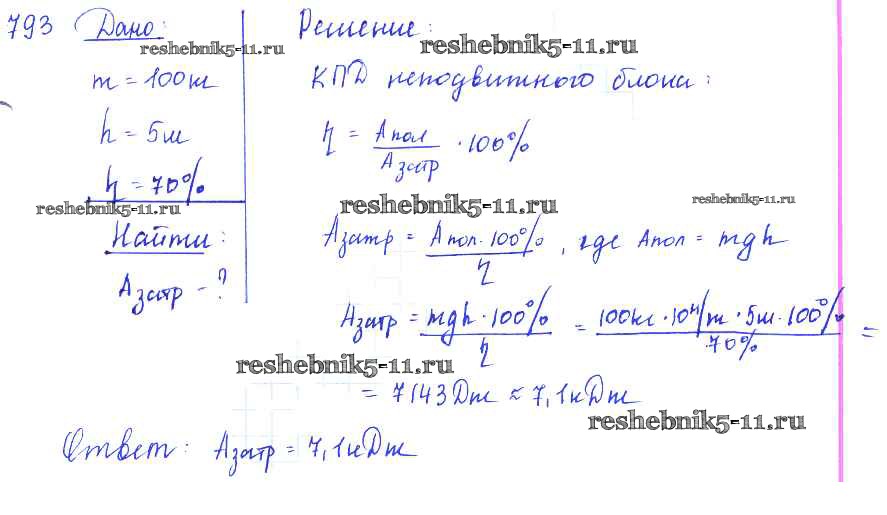 793 Дано:
reshebnik5-11.ru
m = 100 кг
h = 5 м
η = 70%
reshebnik5-11.ru
Найти:
A затр - ?
Решение:
reshebnik5-11.ru
КПД неподвижного блока:
η = A пол / A затр · 100%
reshebnik5-11.ru
reshebnik5-11.ru
A затр = A пол · 100% / η , где A пол = mgh
A затр = mgh · 100% / η = 100 кг · 10 Н/м · 5 м · 100% / 70% =
reshebnik5-11.ru
= 7143 Дж ≈ 7,1 кДж
reshebnik5-11.ru
Ответ: A затр = 7,1 кДж